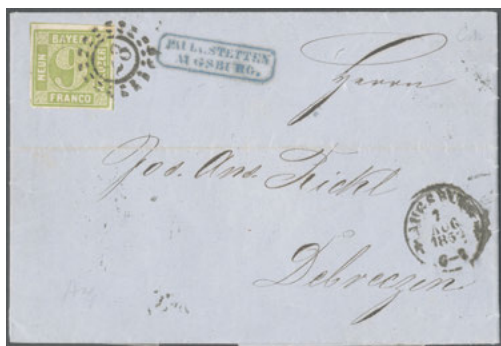 BAYERN
NEUN
KREUZER
9
FRANCO
PAUL v. STETTEN
AUGSBURG.
Herrn
Jos. Ans. Rickl
AUGSBURG
AUG
185
6-8
Debreczen